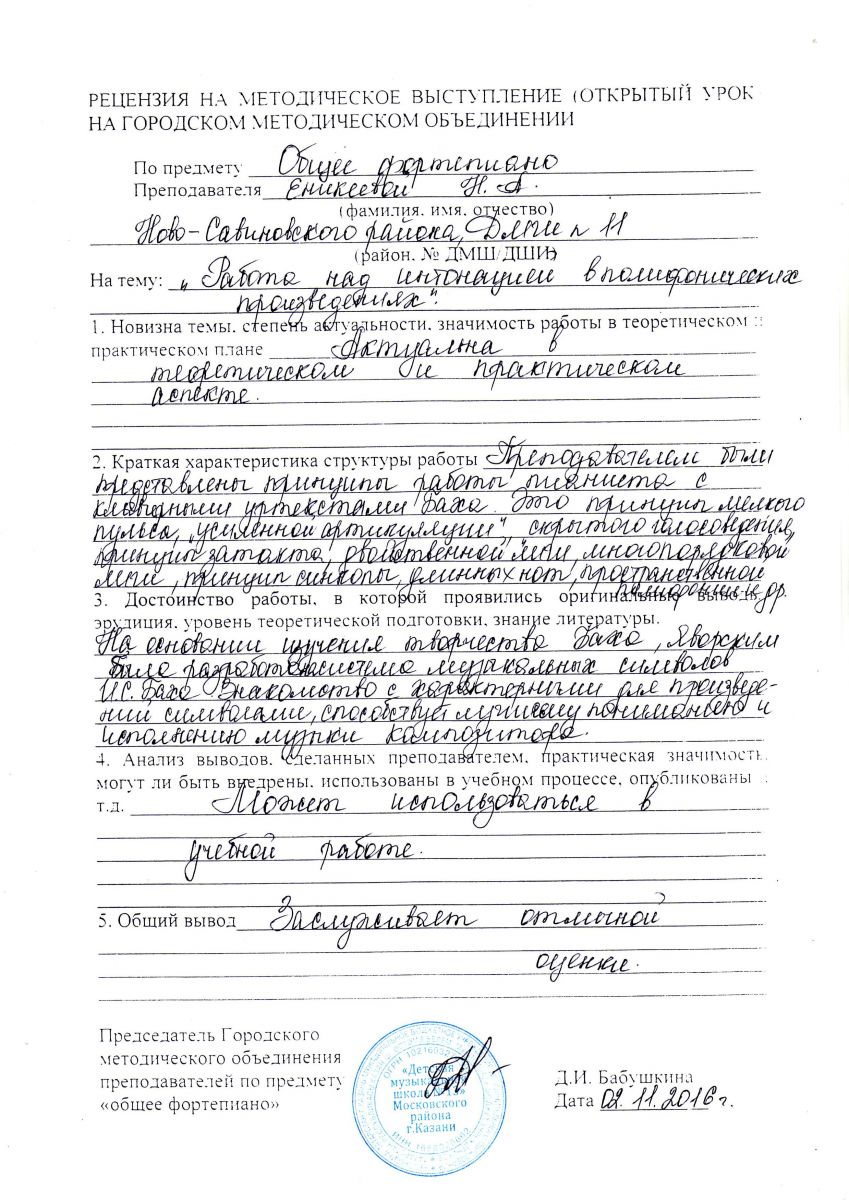 РЕЦЕНЗИЯ НА МЕТОДИЧЕСКОЕ ВЫСТУПЛЕНИЕ (ОТКРЫТЫЙ УРОК
НА ГОРОДСКОМ МЕТОДИЧЕСКОМ ОБЪЕДИНЕНИИ
По предмету Общее фортепиано
Преподавателя Еникеевой Н. А.
(фамилия, имя, отчество)
Ново-Савиновского района, ДМШ № 11
(район, № ДМШ/ДШИ)
На тему: „Работа над интонацией в полифонических
произведениях".
1. Новизна темы, степень актуальности, значимость работы в теоретическом и
практическом плане Актуальна в
теоретическом и практическом
аспекте.
2. Краткая характеристика структуры работы Преподавателем были
представлены принципы работы пианиста с
клавирными уртекстами Баха. Это принцип мелкого
пульса, „усиленной артикуляции", скрытого голосоведения,
принцип затакта, двойственной лиги, многопорядковой
лиги, принцип синкопы, длинных нот, пространственной
полифонии и др.
3. Достоинство работы, в которой проявились оригинальные выводы,
эрудиция, уровень теоретической подготовки, знание литературы.
На основании изучения творчества Баха, Яворским
была разработана система музыкальных символов
И.С. Баха. Знакомство с характерными для произведе-
ний символами, способствует лучшему пониманию и
исполнению музыки композитора.
4. Анализ выводов, сделанных преподавателем, практическая значимость,
могут ли быть внедрены, использованы в учебном процессе, опубликованы
т.д. Может использоваться в
учебной работе.
5. Общий вывод Заслуживает отличной
оценки.
Председатель Городского
методического объединения
преподавателей по предмету
«общее фортепиано»
«Детская
музыкальная
школа
Московского
района
г.Казани
Д.И. Бабушкина
Дата 02.11.2016 г.